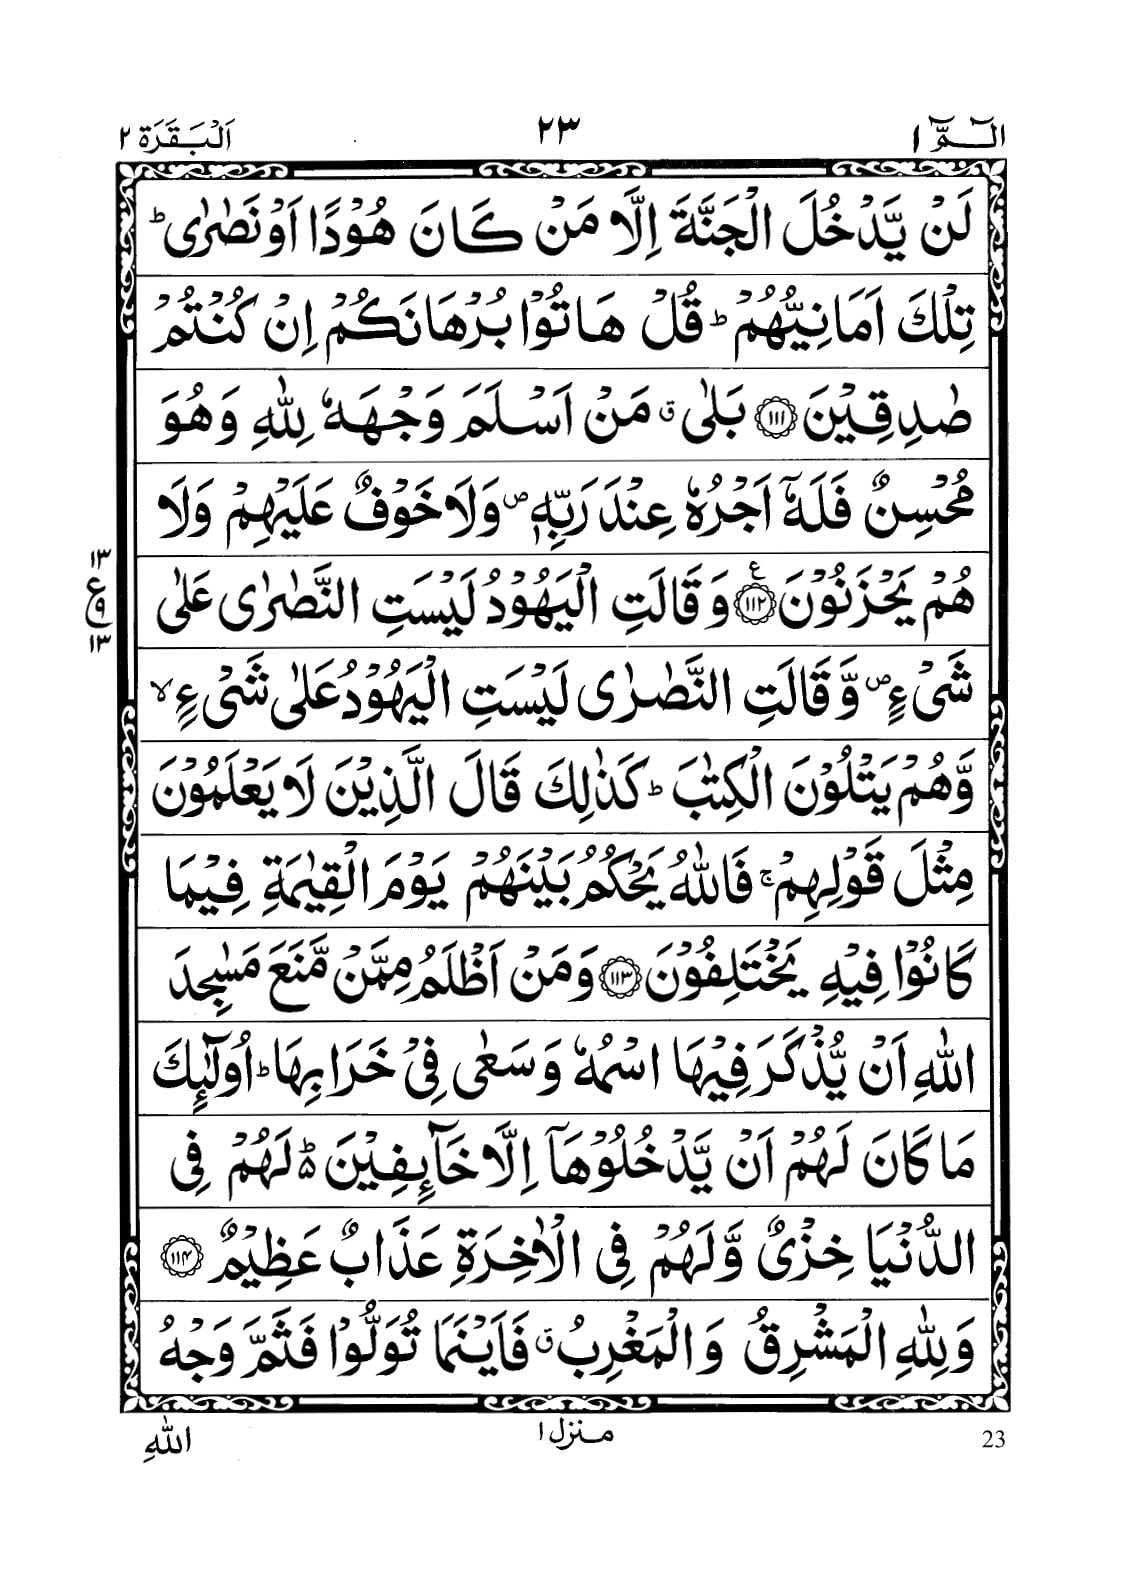 الٓـمّٓ ١ ٢٣ اَلْبَقَرَة ٢
لَنْ يَّدْخُلَ الْجَنَّةَ اِلَّا مَنْ كَانَ هُوْدًا اَوْنَصٰرٰى ؕ
تِلْكَ اَمَانِيُّهُمْ ؕ قُلْ هَاتُوْا بُرْهَانَكُمْ اِنْ كُنْتُمْ
صٰدِقِيْنَ ﴿۱۱۱﴾ بَلٰى ۗ مَنْ اَسْلَمَ وَجْهَهٗ لِلّٰهِ وَهُوَ
مُحْسِنٌ فَلَهٗۤ اَجْرُهٗ عِنْدَ رَبِّهٖ ۪ وَلَا خَوْفٌ عَلَيْهِمْ وَلَا
هُمْ يَحْزَنُوْنَ ﴿۱۱۲﴾ ع وَقَالَتِ الْيَهُوْدُ لَيْسَتِ النَّصٰرٰى عَلٰى
١٣
ع
٩
١٣
شَىْءٍ ۪ وَّقَالَتِ النَّصٰرٰى لَيْسَتِ الْيَهُوْدُ عَلٰى شَىْءٍ ۙ
وَّهُمْ يَتْلُوْنَ الْكِتٰبَ ؕ كَذٰلِكَ قَالَ الَّذِيْنَ لَا يَعْلَمُوْنَ
مِثْلَ قَوْلِهِمْ ۚ فَاللّٰهُ يَحْكُمُ بَيْنَهُمْ يَوْمَ الْقِيٰمَةِ فِيْمَا
كَانُوْا فِيْهِ يَخْتَلِفُوْنَ ﴿۱۱۳﴾ وَمَنْ اَظْلَمُ مِمَّنْ مَّنَعَ مَسٰجِدَ
اللّٰهِ اَنْ يُّذْكَرَ فِيْهَا اسْمُهٗ وَسَعٰى فِىْ خَرَابِهَا ؕ اُولٰٓئِكَ
مَا كَانَ لَهُمْ اَنْ يَّدْخُلُوْهَاۤ اِلَّا خَآئِفِيْنَ ؕ۬ لَهُمْ فِى
الدُّنْيَا خِزْىٌ وَّلَهُمْ فِى الْاٰخِرَةِ عَذَابٌ عَظِيْمٌ ﴿۱۱۴﴾
وَلِلّٰهِ الْمَشْرِقُ وَالْمَغْرِبُ ۗ فَاَيْنَمَا تُوَلُّوْا فَثَمَّ وَجْهُ
23 منزل ١ اللّٰهِ